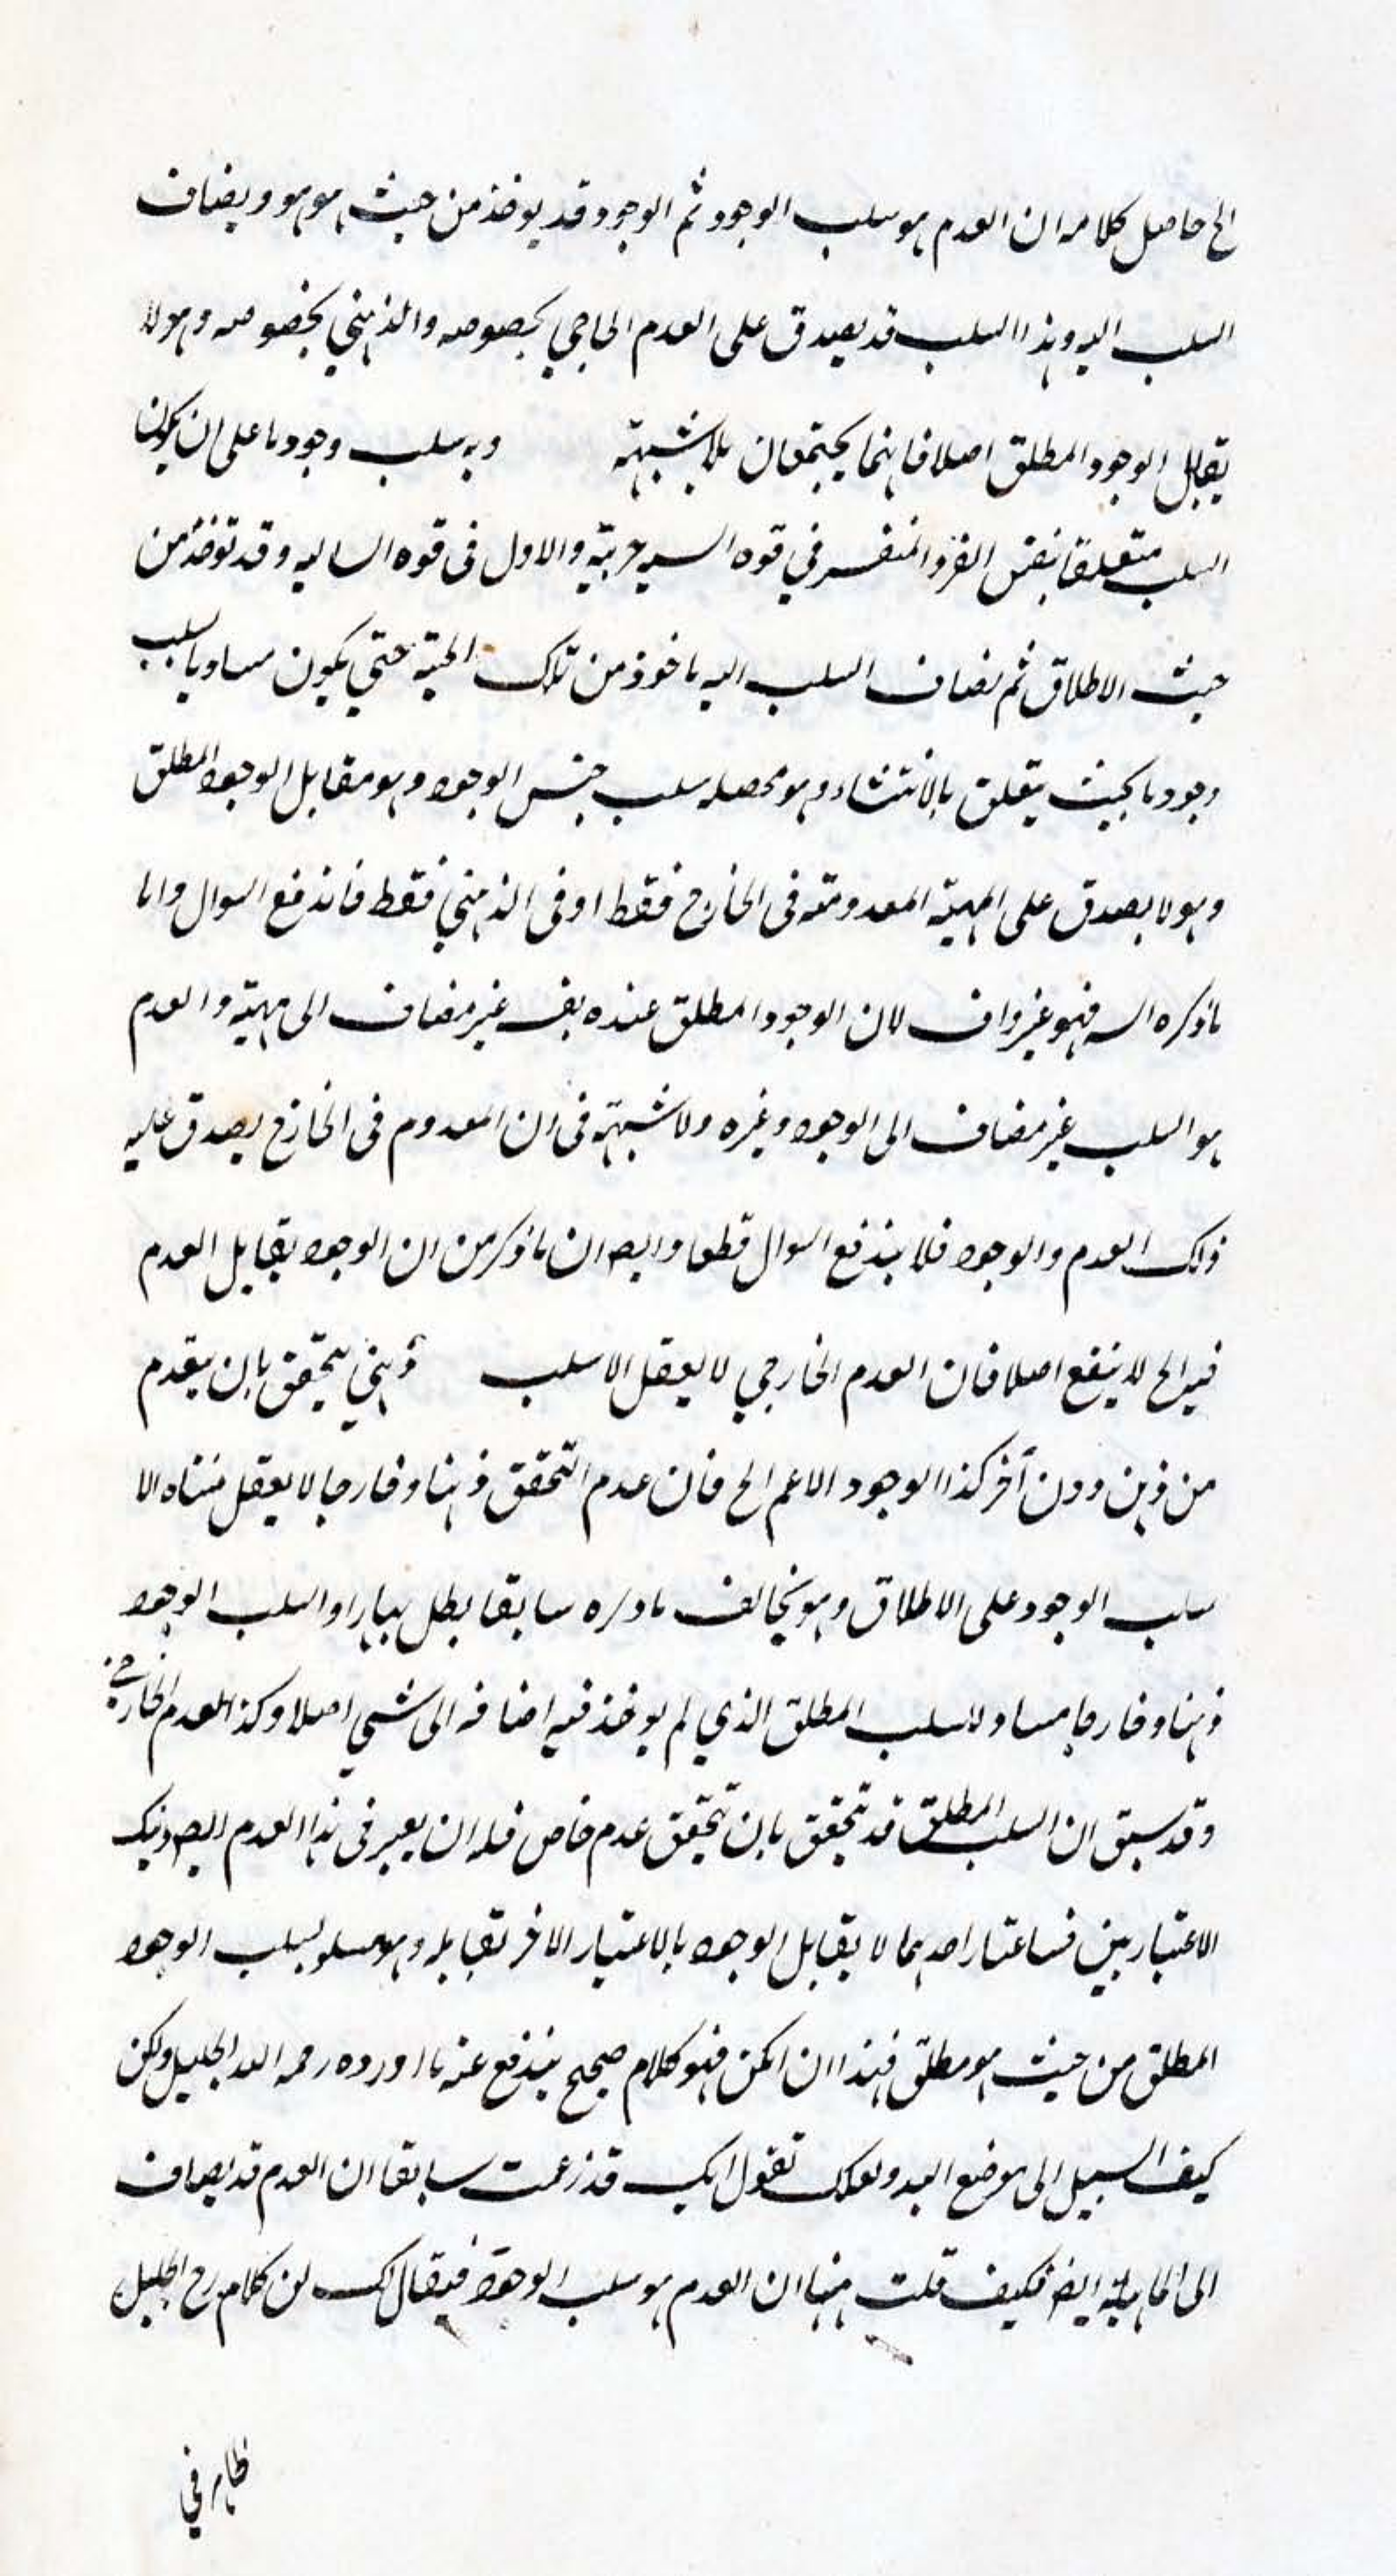 الخ حاصل كلامه ان العدم هو سلب الوجود ثم الوجود قد يوخذ من حيث هو هو ويضاف
السلب اليه وهذا السلب قد يصدق على العدم الخاجي بخصوصه والذهني بخصوصه وهو لا
يقابل الوجود المطلق اصلا فانهما يجتمعان بلا شبهة وبه سلب وجود ما على ان يكون
السلب متعلقا بنفس الفرد المنتشر في قوه السـ جزيية والاول فى قوه السالبه وقد توخذ من
حيث الاطلاق ثم يضاف السلب اليه ماخوذ من تلك الحيثية حتي يكون مساويا لسلب
وجود ما بحيث يتعلق بالانتشاء وهو محصله سلب جنس الوجود وهو مقابل الوجود المطلق
وهو لا يصدق على المهية المعدومة فى الخارج فقط او فى الذهني فقط فاندفع السوال واما
ما ذكره السـ فهو غير واف لان الوجود المطلق عنده يضـ غير مضاف الى مهية والعدم
هو السلب غير مضاف الى الوجود وغيره ولا شبهة فى ان المعدوم فى الخارج يصدق عليه
ذلك العدم والوجود فلا يندفع السوال قطعا وايضا ان ما ذكر من ان الوجود يقابل العدم
فيه الخ لا ينفع اصلا فان العدم الخارجي لا يعقل الا سلب ذهني يتحقق بان يعدم
من ذهن دون آخر كذا الوجود الاعم الخ فان عدم التحقق ذهنا وخارجا لا يعقل معناه الا
سلب الوجود على الاطلاق وهو يخالف ما ذكره سابقا بطل السلب الوجود
ذهنا وخارجا مساو لاسلب المطلق الذي لم يوخذ فيه اضافه الى شي اصلا وكذا العدم الخارجي
وقد سبق ان السلب المطلق قد تحقق بان تحقق عدم خاص فله ان يعبر فى هذا العدم ايضا ذينك
الاعتبارين فساعتبار احدهما لا يقابل الوجود بالاعتبار الاخر تقابله وهو مساو لسلب الوجود
المطلق من حيث هو مطلق فهذا ان امكن فهو كلام صحيح يندفع عنه ما اورده رحمه الله الجليل ولكن
كيف السبيل الى موضع اليد ولعلك تقول انك قد زعمت سابقا ان العدم قد يضاف
الى الماهية ايضا فكيف قلت ههنا ان العدم هو سلب الوجود فيقال لك ان كلام رح الجليل
ظاهر في